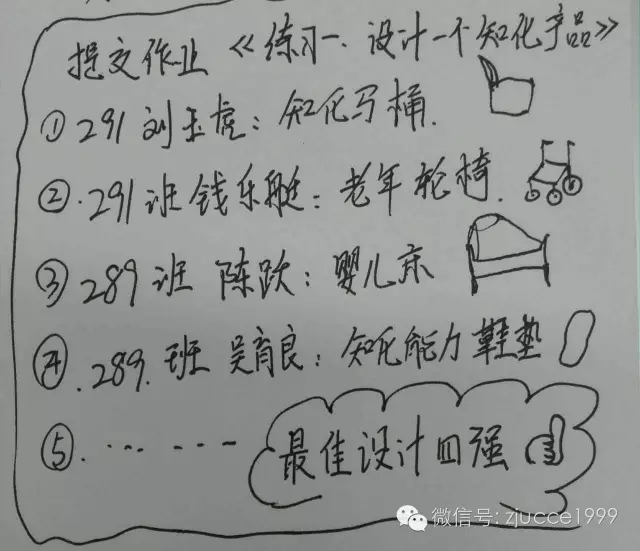 提交作业《练习一、设计一个知化产品》
① 291 刘玉虎：知化马桶.
②. 291班 钱乐艇：老年轮椅.
③ 289班 陈跃：婴儿床
④. 289. 班 吴育良：知化能力鞋垫
⑤. ·········
最佳设计四强
微信号: zjucce1999